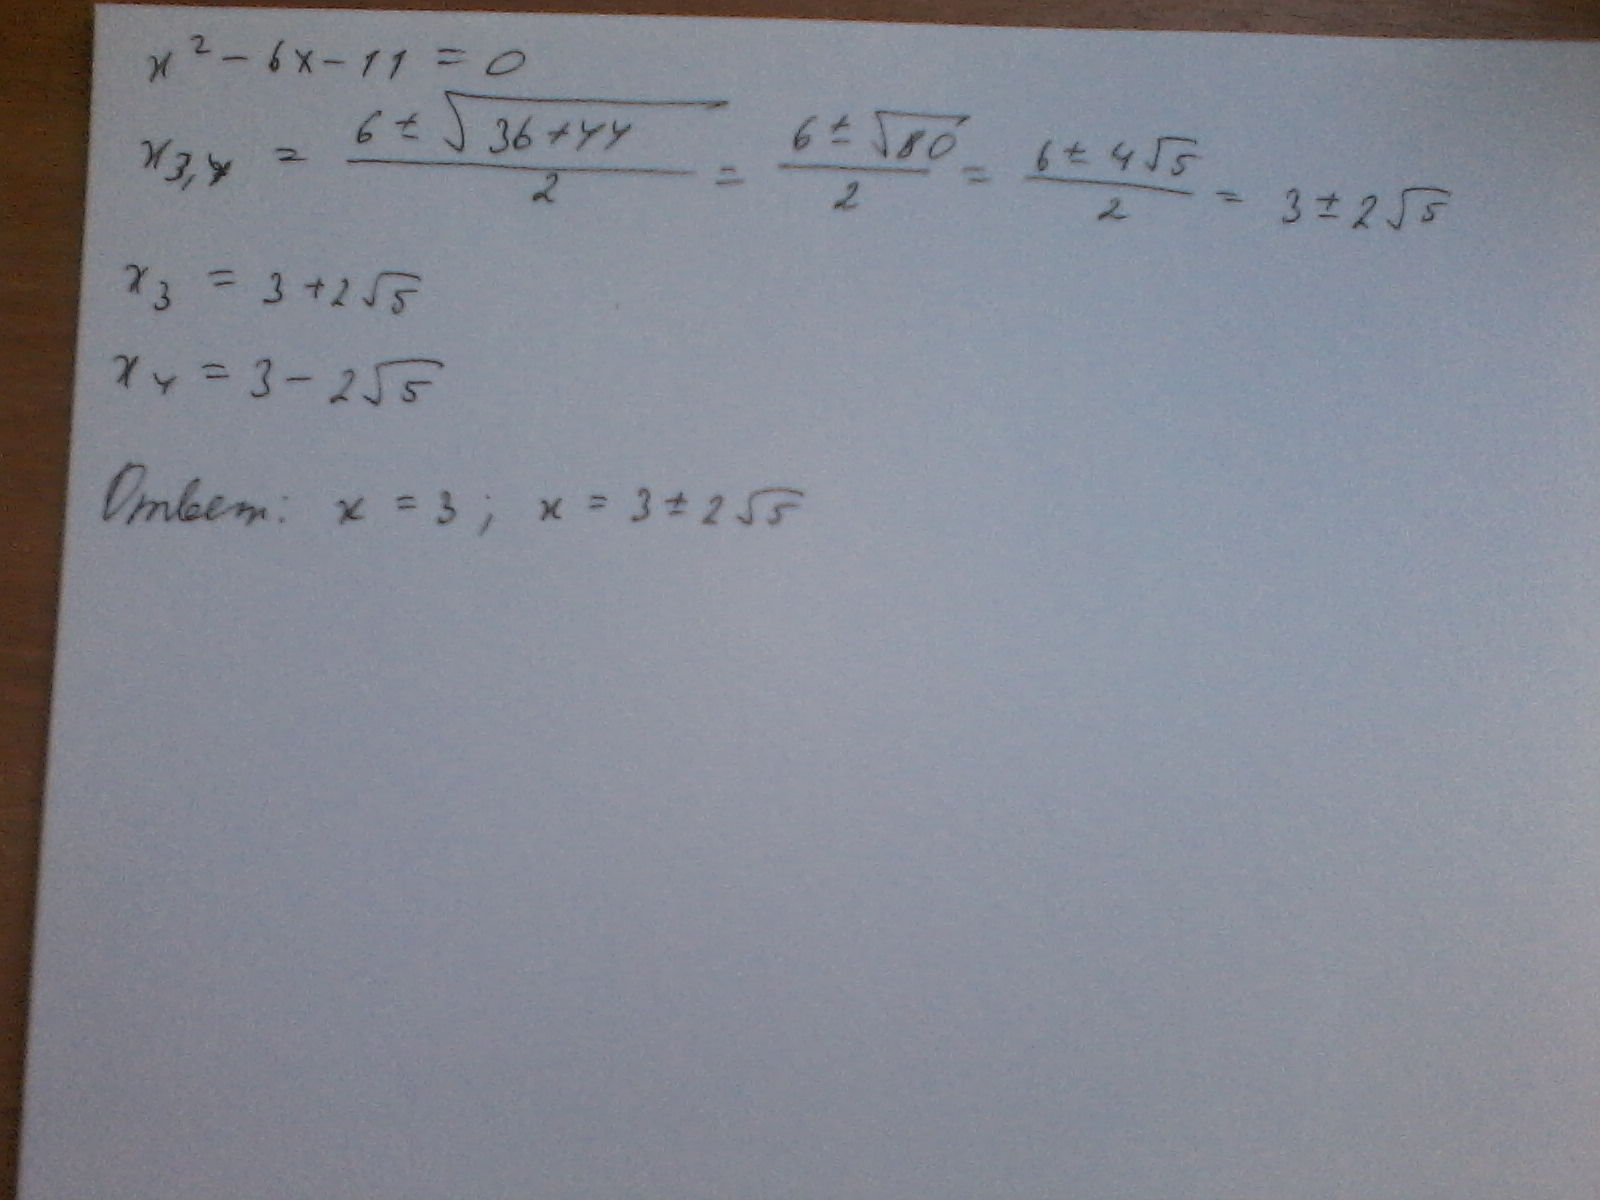 x² - 6x - 11 = 0
x₃,₄ = (6 ± √(36+44))/2 = (6 ± √80)/2 = (6 ± 4√5)/2 = 3 ± 2√5
x₃ = 3 + 2√5
x₄ = 3 - 2√5
Ответ: x = 3; x = 3 ± 2√5